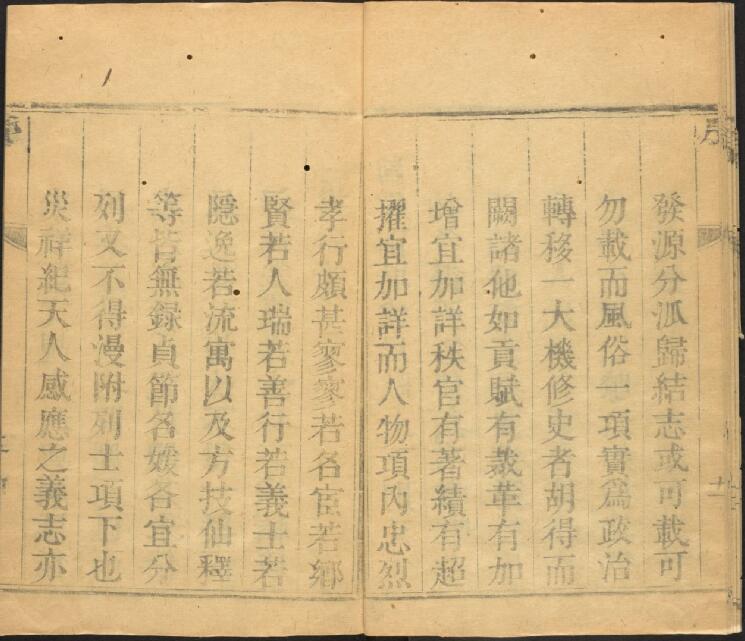 序
發源分泒歸結志或可載可
勿載而風俗一項實爲政治
轉移一大機修史者胡得而
闕諸他如貢賦有裁革有加
增宜加詳秩官有著績有超
擢宜加詳而人物項內忠烈
孝行頗甚寥寥若名宦若鄉
賢若人瑞若善行若義士若
隠逸若流寓以及方技仙釋
等皆無録貞節名媛各宜分
列又不得漫附列士項下也
災祥紀天人感應之義志亦